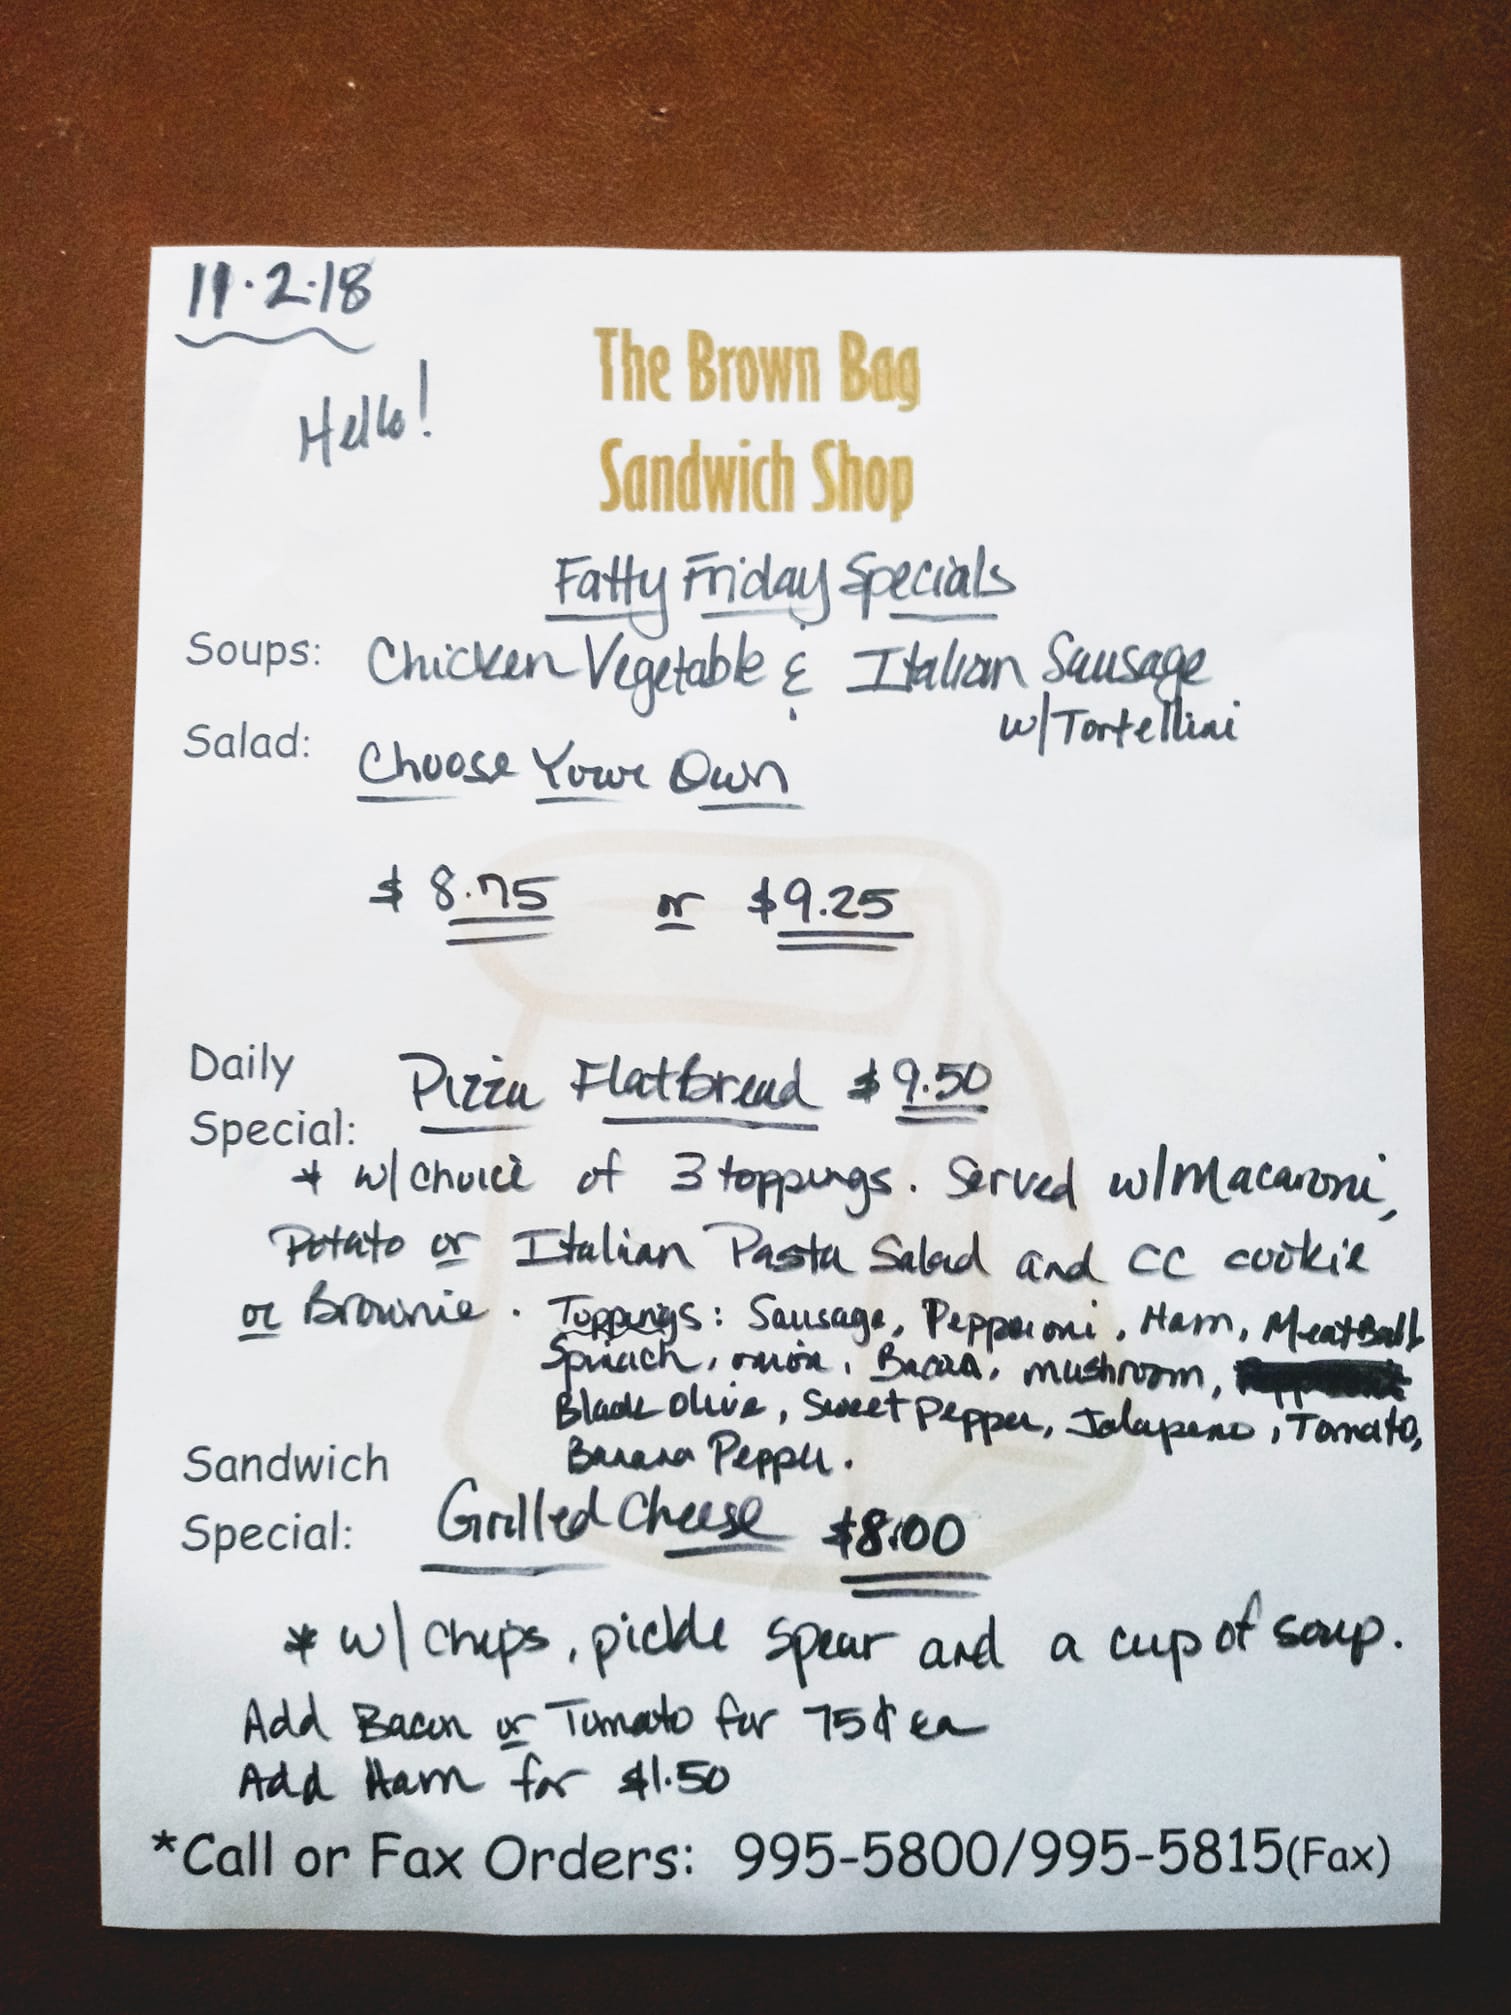 11.2.18
Hello!
The Brown Bag
Sandwich Shop
Fatty Friday Specials
Soups: Chicken Vegetable & Italian Sausage
w/Tortellini
Salad: Choose Your Own
$8.75 or $9.25
Daily
Special: Pizza Flatbread $9.50
* w/ choice of 3 toppings. Served w/Macaroni,
Potato or Italian Pasta Salad and CC cookie
or Brownie. Toppings: Sausage, Pepperoni, Ham, MeatBall
Spinach, onion, Bacon, mushroom,
Black olive, Sweet Pepper, Jalapeno, Tomato,
Banana Pepper.
Sandwich
Special: Grilled Cheese $8.00
* w/ chips, pickle spear and a cup of soup.
Add Bacon or Tomato for 75¢ ea
Add Ham for $1.50
*Call or Fax Orders: 995-5800/995-5815(Fax)